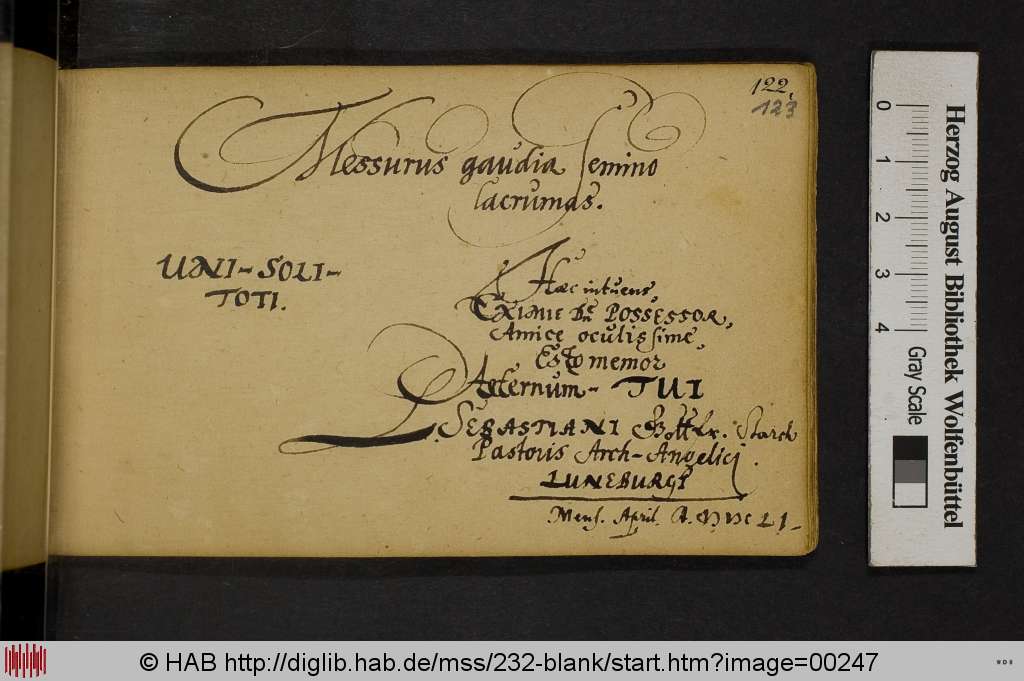 122.
123
Messurus gaudia semino
lacrumas.
UNI - SOLI -
TOTI.
Hæc intuens,
EXIMIE POSSESSOR,
Amice oculissime,
Esto memor
Æternum - TUI
SEBASTIANI Gottfr. Starck
Pastoris Arch-Angelici
LUNEBURGI
Mens. April. A. MDCLI.
0 1 2 3 4
Gray Scale
Herzog August Bibliothek Wolfenbüttel
© HAB http://diglib.hab.de/mss/232-blank/start.htm?image=00247